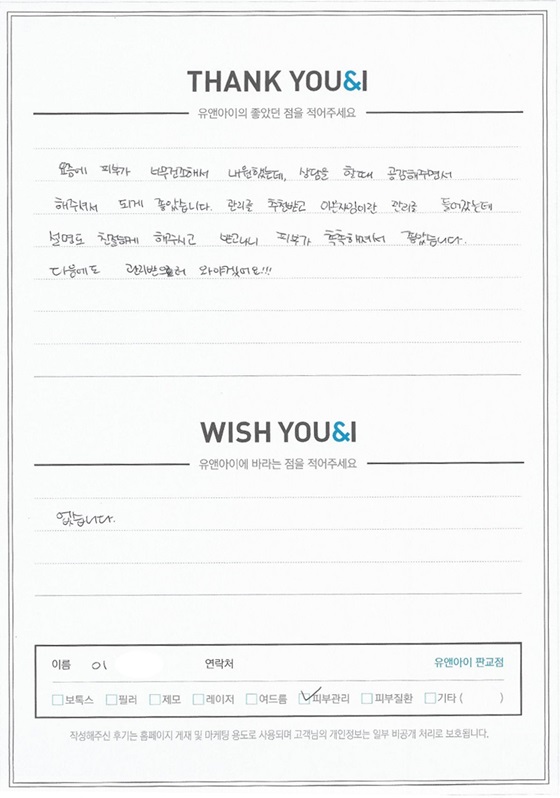 THANK YOU&I
유앤아이의 좋았던 점을 적어주세요
요즘에 피부가 너무건조해서 내원했는데, 상담을 할때 공감해주면서
해주셔서 되게 좋았습니다. 관리를 추천받고 이온자임이란 관리를 들어갔는데
설명도 친절하게 해주시고 받고나니 피부가 촉촉해져서 좋았습니다.
다음에도 관리받으러 와야겠어요!!!
WISH YOU&I
유앤아이에 바라는 점을 적어주세요
없습니다.
이름 이 연락처 유앤아이 판교점
보톡스 필러 제모 레이저 여드름 피부관리 피부질환 기타 ( )
작성해주신 후기는 홈페이지 게재 및 마케팅 용도로 사용되며 고객님의 개인정보는 일부 비공개 처리로 보호됩니다.